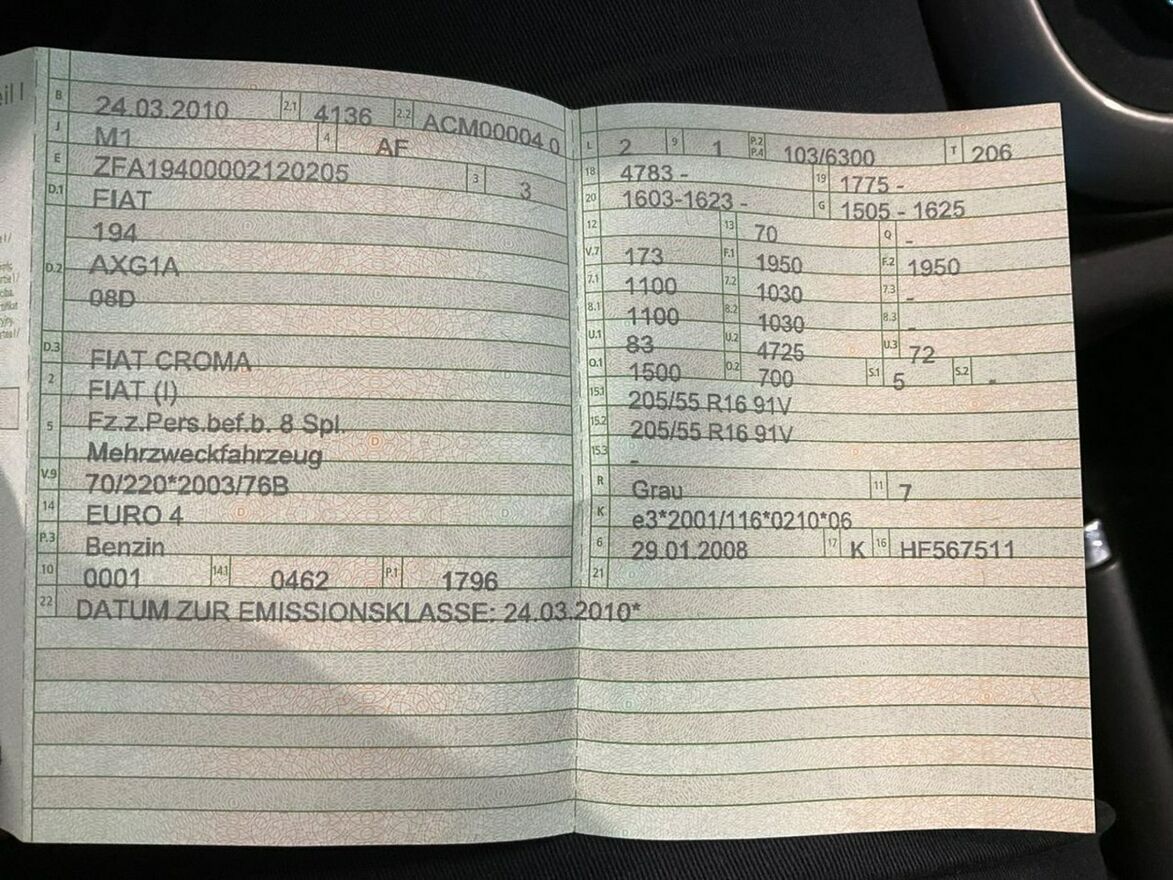 eil I
B 24.03.2010 2.1 4136 2.2 ACM00004 0
J M1 4 AF
E ZFA19400002120205 3 3
D.1 FIAT
194
D.2 AXG1A
08D
D.3 FIAT CROMA
2 FIAT (I)
5 Fz.z.Pers.bef.b. 8 Spl.
Mehrzweckfahrzeug
V.9 70/220*2003/76B
14 EURO 4
P.3 Benzin
10 0001 14.1 0462 P.1 1796
L 2 9 1 P.2 P.4 103/6300 T 206
18 4783 - 19 1775 -
20 1603-1623 - G 1505 - 1625
12 13 70 Q -
V.7 173 F.1 1950 F.2 1950
7.1 1100 7.2 1030 7.3 -
8.1 1100 8.2 1030 8.3 -
U.1 83 U.2 4725 U.3 72
O.1 1500 O.2 700 S.1 5 S.2 -
15.1 205/55 R16 91V
15.2 205/55 R16 91V
15.3 -
R Grau 11 7
K e3*2001/116*0210*06
6 29.01.2008 17 K 16 HF567511
21
22 DATUM ZUR EMISSIONSKLASSE: 24.03.2010*